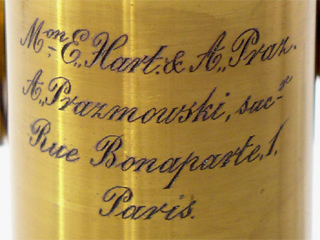 Mon E,, Hart. & A,, Praz.
A,, Prazmowski, sucr
Rue Bonaparte, 1.
Paris.